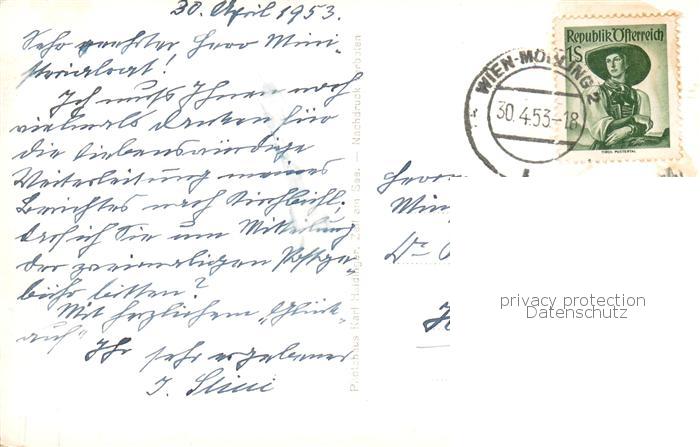 30. April 1953.
Sehr geehrter Herr Mini-
sterialrat!
Ich muß Ihnen noch
vielmals danken für
die liebenswürdige
Weiterleitung meines
Berichtes nach Kirchbichl.
Darf ich Sie um Mitteilung
der zweimaligen Postge-
bühr bitten?
Mit herzlichem „Glück-
auf"
Ihr sehr ergebener
J. Stini
Photohaus Karl Haidinger, Zell am See. — Nachdruck verboten
Republik Österreich
1S
TIROL PUSTERTAL
WIEN-MÖDLING 2
30.4.53-18
Herrn
Min
Dr
privacy protection
Datenschutz